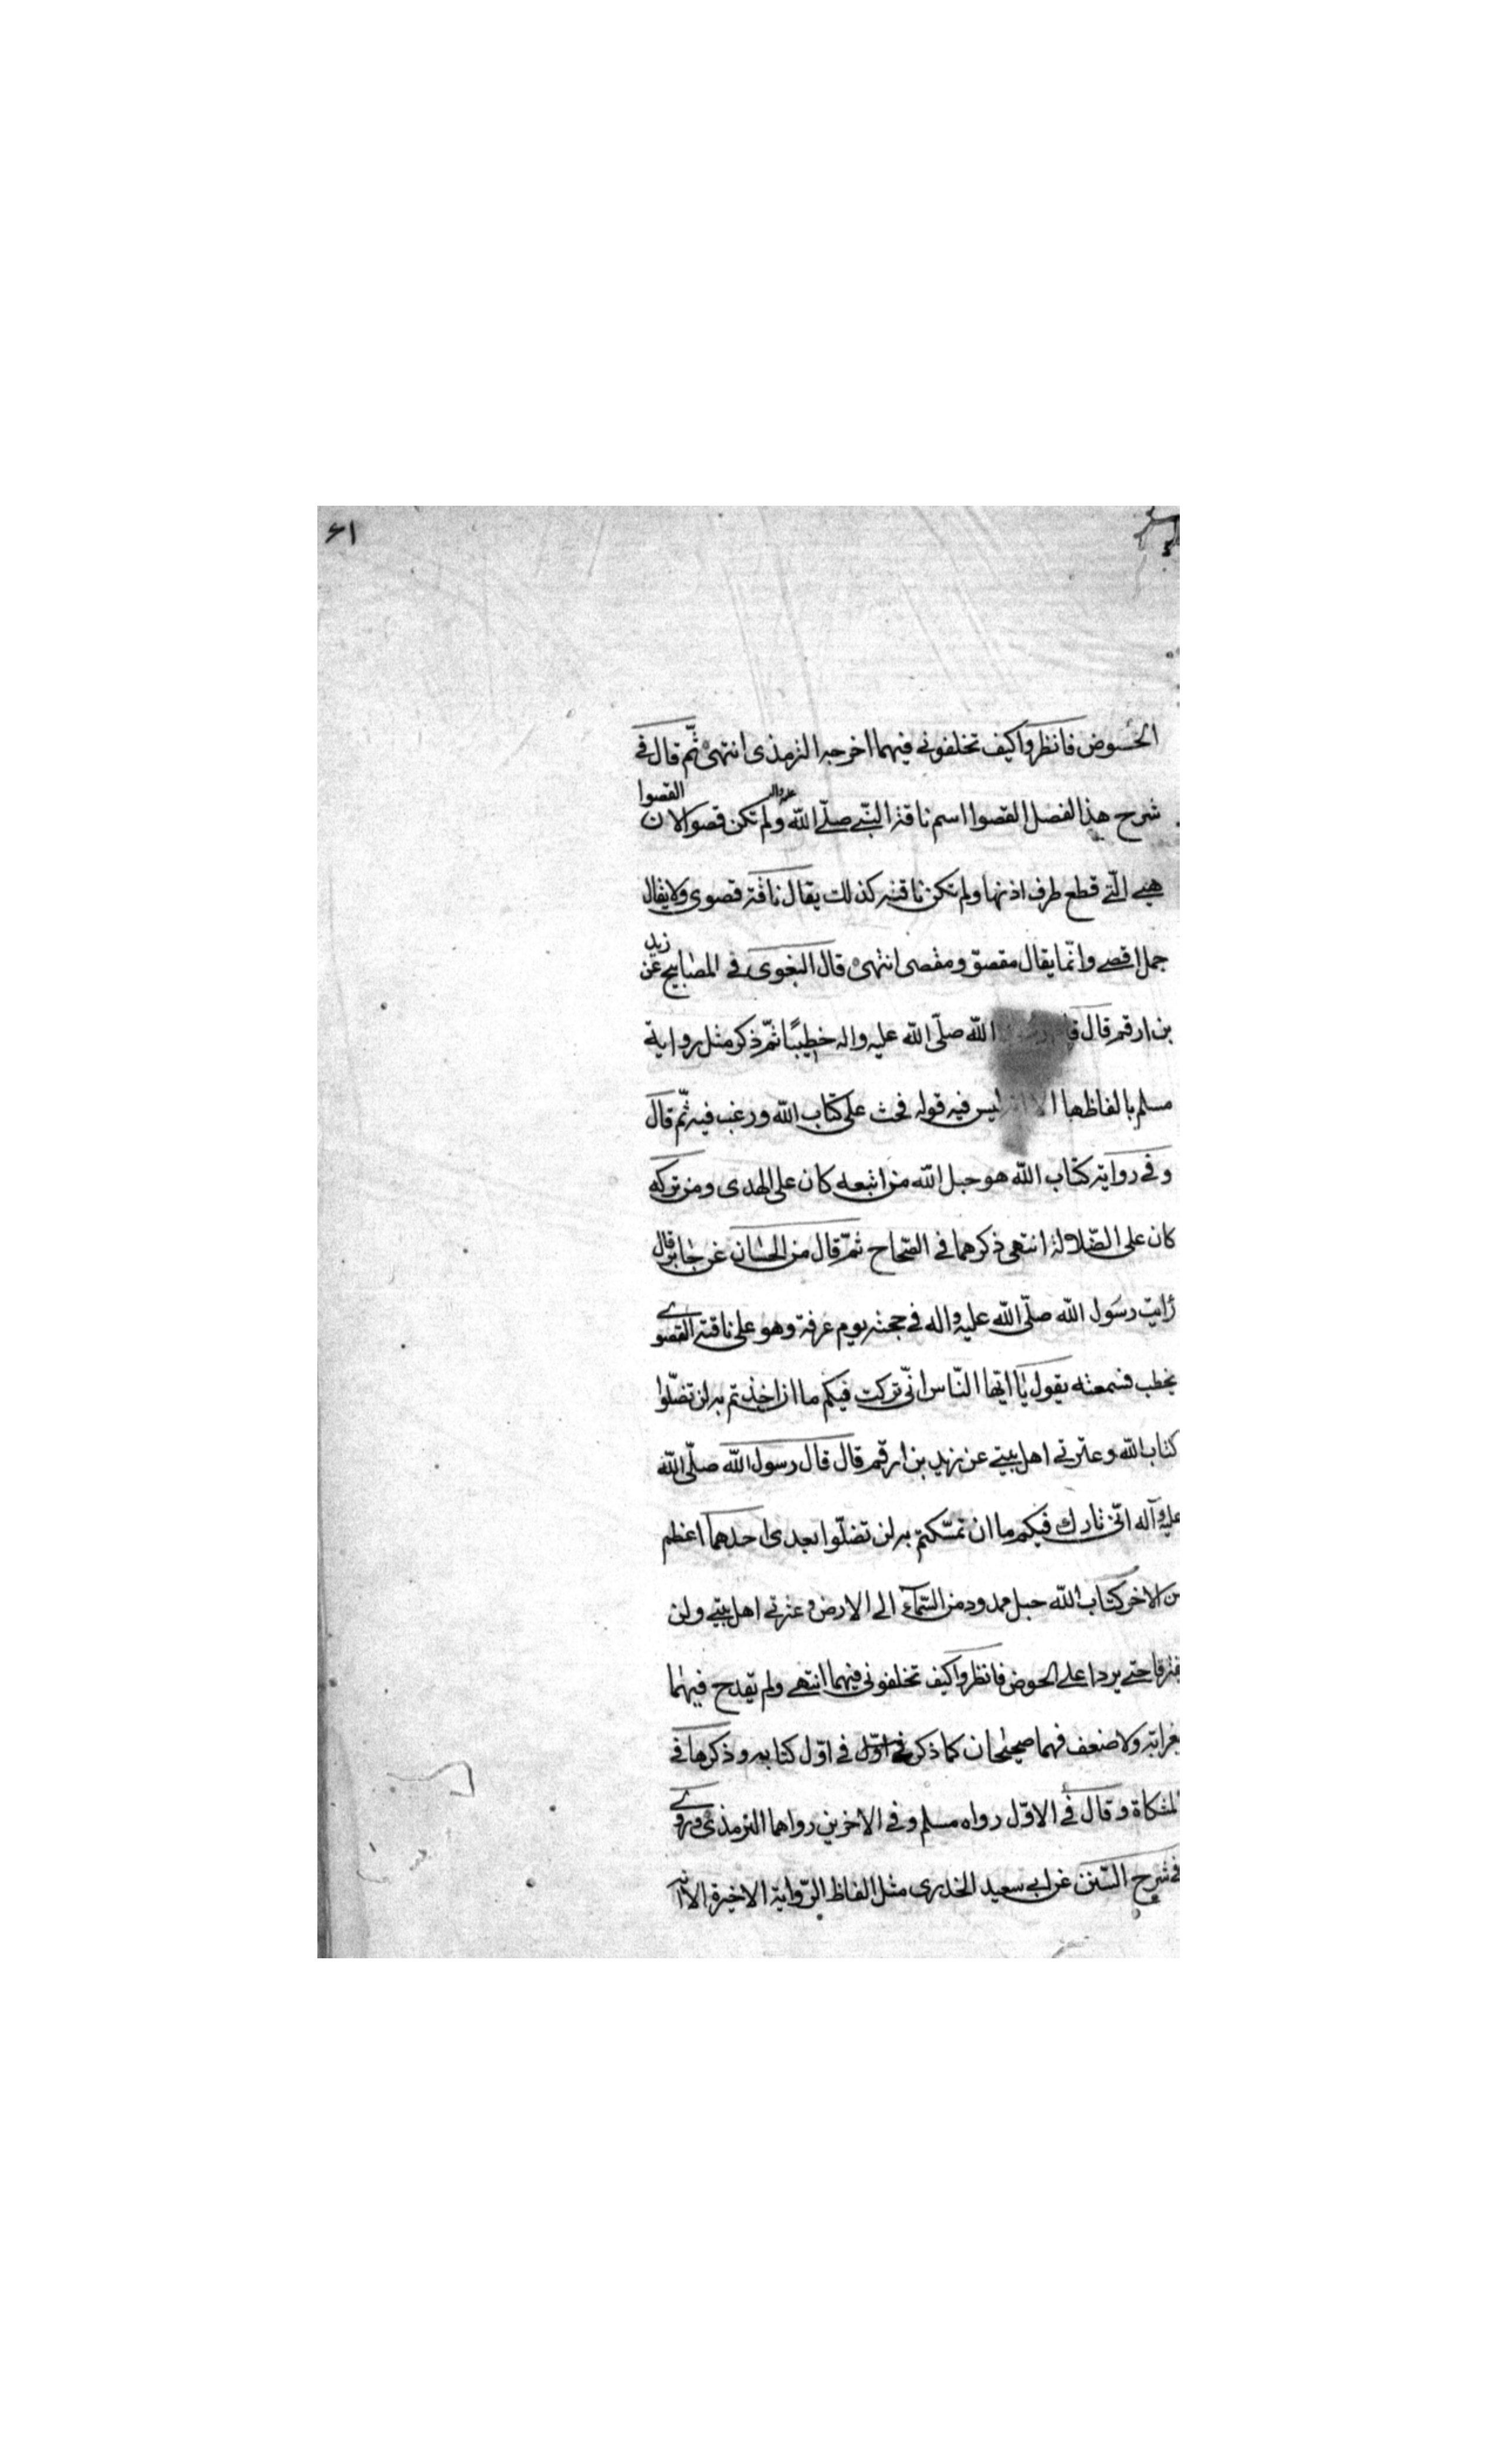 ۶۱
الحوض فانظروا كيف تخلفوني فيهما اخرجه الترمذى انتهى ثمّ قال في
شرح هذا الفصل القصوا اسم ناقة النبّي صلّى الله عليه واله ولم تكن قصوا لان القصوا
هي الّتي قطع طرف اذنها ولم تكن ناقته كذلك يقال ناقة قصوى ولا يقال
جمل اقصى وانّما يقال مقصوّ ومقصى انتهى قال البغوى في المصابيح عن زيد
بن ارقم قال الله صلّى الله عليه واله خطيبًا ثمّ ذكر مثل رواية
مسلم بالفاظها الا ليس فيه قوله فحث على كتاب الله ورغب فيه ثمّ قال
وفي رواية كتاب الله هو حبل الله من اتبعه كان على الهدى ومن تركه
كان على الضّلالة انتهى ذكرهما في الصّحاح ثمّ قال من الحسان عن جابر قال
رايت رسول الله صلّى الله عليه واله في حجته يوم عرفة وهو على ناقته القصوى
يخطب فسمعته يقول يا ايّها النّاس انّي تركت فيكم ما ان اخذتم به لن تضلّوا
كتاب الله وعترتي اهل بيتي عن زيد بن ارقم قال قال رسول الله صلّى الله
عليه وآله انّي تارك فيكم ما ان تمسّكتم به لن تضلّوا بعدى احدهما اعظم
من الاخر كتاب الله حبل ممدود من السّماء الى الارض وعترتي اهل بيتي ولن
يفترقا حتى يردا على الحوض فانظروا كيف تخلفوني فيهما انتهى ولم يقدح فيهما
بغرابة ولا ضعف فهما صحيحان كما ذكر في اوّل في اوّل كتابه وذكرها في
المشكاة وقال في الاوّل رواه مسلم وفي الاخرين رواهما الترمذى وروى
في شرح السّنن عن ابي سعيد الخدرى مثل الفاظ الرّواية الاخيرة الا انه